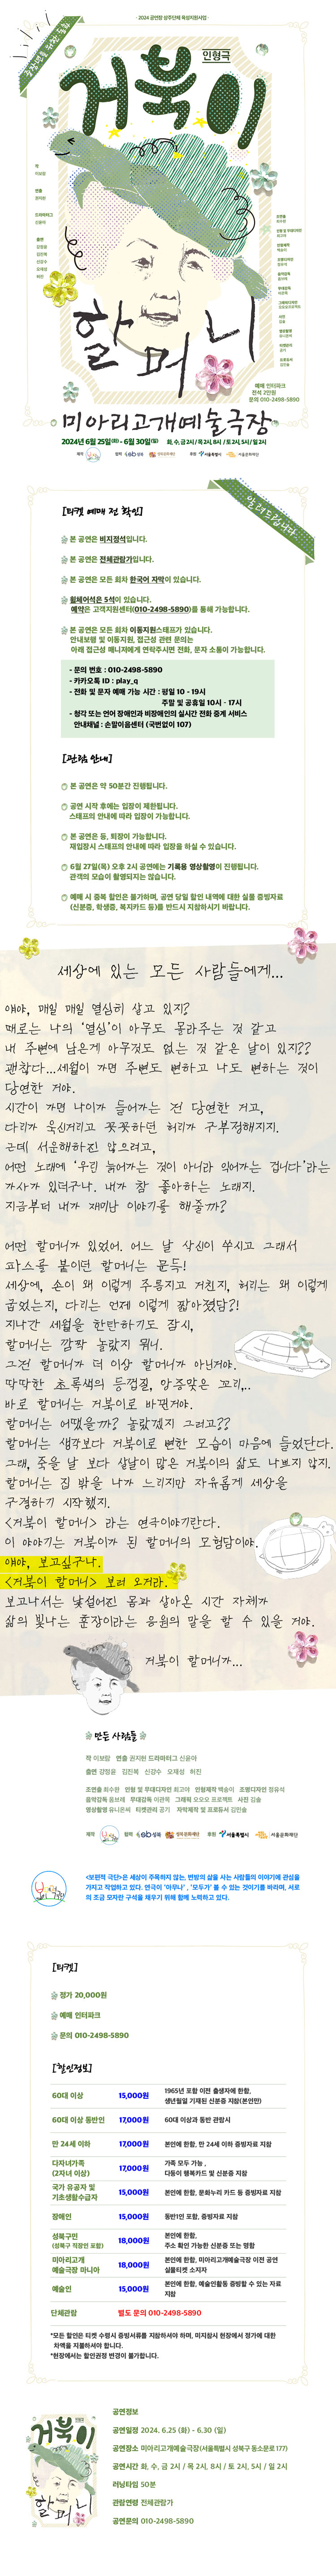 · 2024 공연장 상주단체 육성지원사업 ·
인형극
거북이
할머니
예매 인터파크
전석 2만원
문의 010-2498-5890
미아리고개예술극장
2024년 6월 25일(화) - 6월 30일(일) 화, 수, 금 2시 / 목 2시, 8시 / 토 2시, 5시 / 일 2시
알려드립니다
[티켓 예매 전 확인]
본 공연은 비지정석입니다.
본 공연은 전체관람가입니다.
본 공연은 모든 회차 한국어 자막이 있습니다.
휠체어석은 5석이 있습니다.
예약은 고객지원센터(010-2498-5890)를 통해 가능합니다.
본 공연은 모든 회차 이동지원스태프가 있습니다.
안내보행 및 이동지원, 접근성 관련 문의는
아래 접근성 매니저에게 연락주시면 전화, 문자 소통이 가능합니다.
- 문의 번호 : 010-2498-5890
- 카카오톡 ID : play_q
- 전화 및 문자 예매 가능 시간 : 평일 10 - 19시
주말 및 공휴일 10시 - 17시
- 청각 또는 언어 장애인과 비장애인의 실시간 전화 중계 서비스
안내채널 : 손말이음센터 (국번없이 107)
[관람 안내]
본 공연은 약 50분간 진행됩니다.
공연 시작 후에는 입장이 제한됩니다.
스태프의 안내에 따라 입장이 가능합니다.
본 공연은 등, 퇴장이 가능합니다.
재입장시 스태프의 안내에 따라 입장을 하실 수 있습니다.
6월 27일(목) 오후 2시 공연에는 기록용 영상촬영이 진행됩니다.
관객의 모습이 촬영되지는 않습니다.
예매 시 중복 할인은 불가하며, 공연 당일 할인 내역에 대한 실물 증빙자료
(신분증, 학생증, 복지카드 등)를 반드시 지참하시기 바랍니다.
세상에 있는 모든 사람들에게...
얘야, 매일 매일 열심히 살고 있지?
때로는 나의 '열심'이 아무도 몰라주는 것 같고
내 주변에 남은게 아무것도 없는 것 같은 날이 있지??
괜찮다...세월이 가면 주변도 변하고 나도 변하는 것이
당연한 거야.
시간이 가면 나이가 들어가는 건 당연한 거고,
다리가 욱신거리고 꼿꼿하던 허리가 구부정해지지.
근데 서운해하진 않으려고,
어떤 노래에 '우린 늙어가는 것이 아니라 익어가는 겁니다'라는
가사가 있더구나. 내가 참 좋아하는 노래지.
지금부터 내가 재미난 이야기를 해줄까?
어떤 할머니가 있었어. 어느 날 삭신이 쑤시고 그래서
파스를 붙이던 할머니는 문득!
세상에, 손이 왜 이렇게 주름지고 거친지, 허리는 왜 이렇게
굽었는지, 다리는 언제 이렇게 짧아졌담?!
지나간 세월을 한탄하기도 잠시,
할머니는 깜짝 놀랐지 뭐니.
그건 할머니가 더 이상 할머니가 아닌거야.
딱딱한 초록색의 등껍질, 앙증맞은 꼬리,..
바로 할머니는 거북이로 바뀐거야.
할머니는 어땠을까? 놀랐겠지 그러고??
할머니는 생각보다 거북이로 변한 모습이 마음에 들었단다.
그래, 죽을 날 보다 살날이 많은 거북이의 삶도 나쁘지 않지.
할머니는 집 밖을 나가 느리지만 자유롭게 세상을
구경하기 시작했지.
<거북이 할머니> 라는 연극이야기란다.
이 이야기는 거북이가 된 할머니의 모험담이야.
얘야, 보고싶구나.
<거북이 할머니> 보러 오거라.
보고나서는 낯설어진 몸과 살아온 시간 자체가
삶의 빛나는 훈장이라는 응원의 말을 할 수 있을 거야.
거북이 할머니가...
만든 사람들
작 이보람 연출 권지현 드라마터그 신윤아
출연 강정윤 김진복 신강수 오재성 허진
조연출 최수완 인형 및 무대디자인 최고아 인형제작 백송이 조명디자인 정유석
음악감독 옴브레 무대감독 이관목 그래픽 오오오 프로젝트 사진 김솔
영상촬영 유니온씨 티켓관리 공기 자막제작 및 프로듀서 김민솔
제작 협력 성북 성북문화재단 후원 서울특별시 서울문화재단
<보편적 극단>은 세상이 주목하지 않는, 변방의 삶을 사는 사람들의 이야기에 관심을
가지고 작업하고 있다. 연극이 '아무나' , '모두가' 볼 수 있는 것이기를 바라며, 서로
의 조금 모자란 구석을 채우기 위해 함께 노력하고 있다.
[티켓]
정가 20,000원
예매 인터파크
문의 010-2498-5890
[할인정보]
60대 이상 15,000원 1965년 포함 이전 출생자에 한함,
생년월일 기재된 신분증 지참(본인만)
60대 이상 동반인 17,000원 60대 이상과 동반 관람시
만 24세 이하 17,000원 본인에 한함, 만 24세 이하 증빙자료 지참
다자녀가족
(2자녀 이상) 17,000원 가족 모두 가능 ,
다둥이 행복카드 및 신분증 지참
국가 유공자 및
기초생활수급자 15,000원 본인에 한함, 문화누리 카드 등 증빙자료 지참
장애인 15,000원 동반1인 포함, 증빙자료 지참
성북구민
(성북구 직장인 포함) 18,000원 본인에 한함,
주소 확인 가능한 신분증 또는 명함
미아리고개
예술극장 마니아 18,000원 본인에 한함, 미아리고개예술극장 이전 공연
실물티켓 소지자
예술인 15,000원 본인에 한함, 예술인활동 증빙할 수 있는 자료
지참
단체관람 별도 문의 010-2498-5890
*모든 할인은 티켓 수령시 증빙서류를 지참하셔야 하며, 미지참시 현장에서 정가에 대한
차액을 지불하셔야 합니다.
*현장에서는 할인권종 변경이 불가합니다.
거북이
할머니
공연정보
공연일정 2024. 6.25 (화) - 6.30 (일)
공연장소 미아리고개예술극장(서울특별시 성북구 동소문로 177)
공연시간 화, 수, 금 2시 / 목 2시, 8시 / 토 2시, 5시 / 일 2시
러닝타임 50분
관람연령 전체관람가
공연문의 010-2498-5890